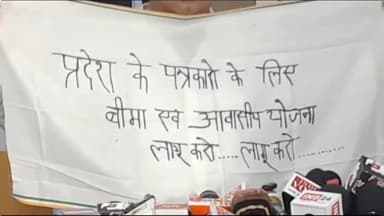 प्रदेश के पत्रकारो के लिस
बीमा एवं आवासीय योजना
लागू करो.....लागू करो..........
24